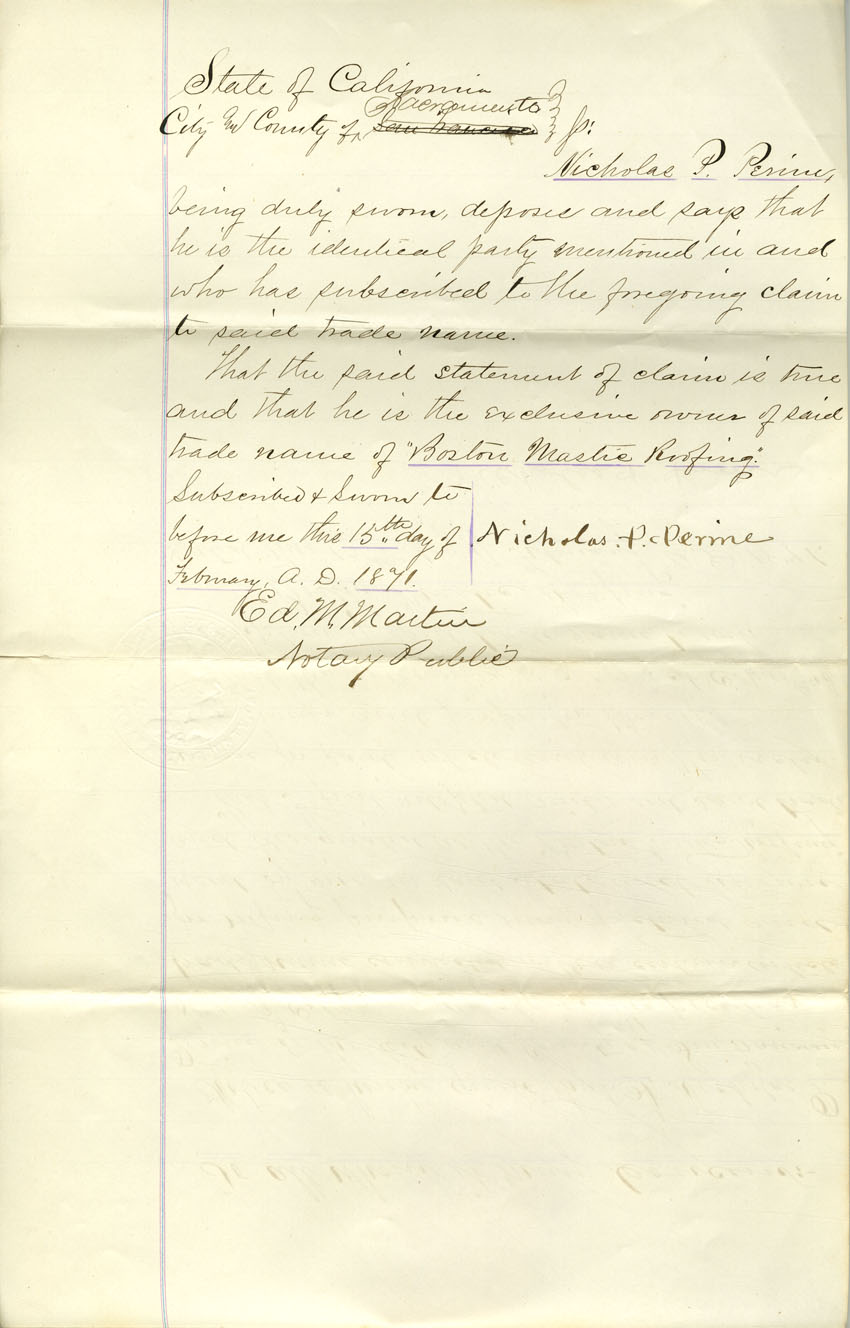 State of California
Sacramento
City and County of San Francisco } ss:
Nicholas P. Perine,
being duly sworn, deposes and says that
he is the identical party mentioned in and
who has subscribed to the foregoing claim
to said trade name.
That the said statement of claim is true
and that he is the exclusive owner of said
trade name of "Boston Mastic Roofing".
Subscribed & Sworn to
before me this 15th day of
Nicholas. P. Perine
February, A. D. 1871.
Ed. M. Martin
Notary Public